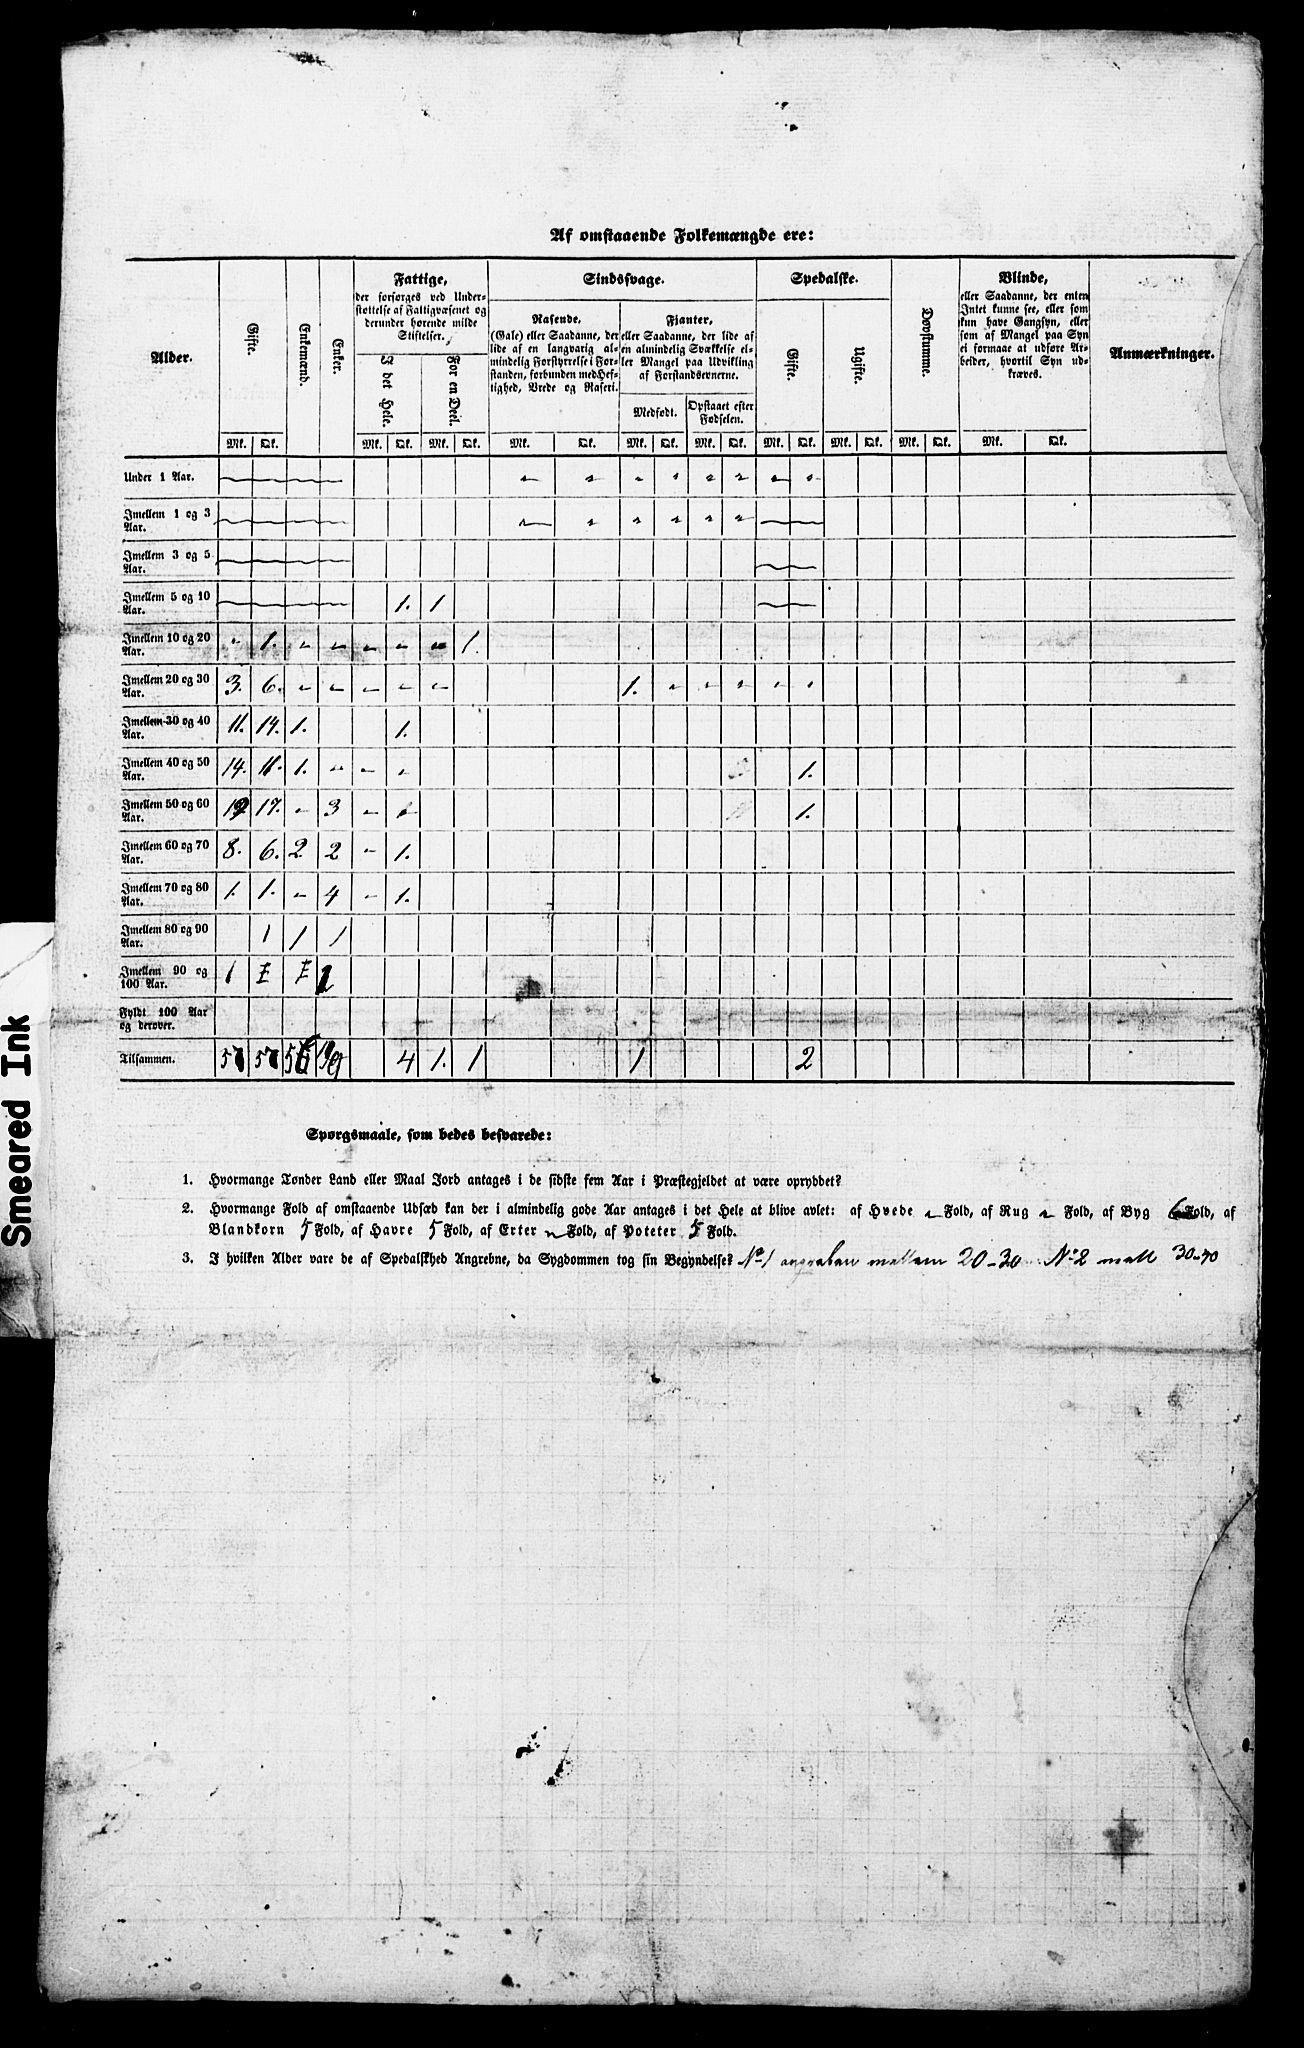 Smeared Ink
Af omstaaende Folkemængde ere:
Alder.
Gifte.
Enkemænd.
Enker.
Fattige,
der forsørges ved Under-
støttelse af Fattigvæsenet og
derunder hørende milde
Stiftelser.
I det Hele.
For en Deel.
Sindssvage.
Rasende,
(Gale) eller Saadanne, der
lide af en langvarig al-
mindelig Forstyrrelse i For-
standen, forbunden med Hef-
tighed, Vrede og Raseri.
Fjanter,
eller Saadanne, der lide af
en almindelig Svækkelse el-
ler Mangel paa Udvikling
af Forstandsevnerne.
Medfødt.
Opstaaet efter
Fødselen.
Spedalske.
Gifte.
Ugifte.
Døvstumme.
Blinde,
eller Saadanne, der enten
Intet kunne see, eller som
kun have Gangsyn, eller
som af Mangel paa Syn
ei formaae at udføre Ar-
beider, hvortil Syn ud-
kræves.
Anmærkninger.
Mk. Qk. Mk. Qk. Mk. Qk. Mk. Qk. Mk. Qk. Mk. Qk. Mk. Qk. Mk. Qk. Mk. Qk. Mk. Qk.
Under 1 Aar.
Imellem 1 og 3
Aar.
Imellem 3 og 5
Aar.
Imellem 5 og 10
Aar. 1. 1
Imellem 10 og 20
Aar. " 1. " " " " " 1.
Imellem 20 og 30
Aar. 3. 6. " " " " " 1. " " " " "
Imellem 30 og 40
Aar. 11. 14. 1. 1.
Imellem 40 og 50
Aar. 14. 11. 1. " " " 1.
Imellem 50 og 60
Aar. 17. " 3 " 1.
Imellem 60 og 70
Aar. 8. 6. 2 2 " 1.
Imellem 70 og 80
Aar. 1. 1. " 4 " 1.
Imellem 80 og 90
Aar. 1 1 1
Imellem 90 og
100 Aar. 1
Fyldt 100 Aar
og derover.
Tilsammen. 4 1. 1 1 2
Spørgsmaale, som bedes besvarede:
1. Hvormange Tønder Land eller Maal Jord antages i de sidste fem Aar i Præstegjeldet at være opryddet?
2. Hvormange Fold af omstaaende Udsæd kan der i almindelig gode Aar antages i det Hele at blive avlet: af Hvede " Fold, af Rug " Fold, af Byg 6 Fold, af
Blandkorn 5 Fold, af Havre 5 Fold, af Erter " Fold, af Poteter 5 Fold.
3. I hvilken Alder vare de af Spedalskhed Angrebne, da Sygdommen tog sin Begyndelse? No 1 angreben mellem 20-30 No 2 mell 30-40